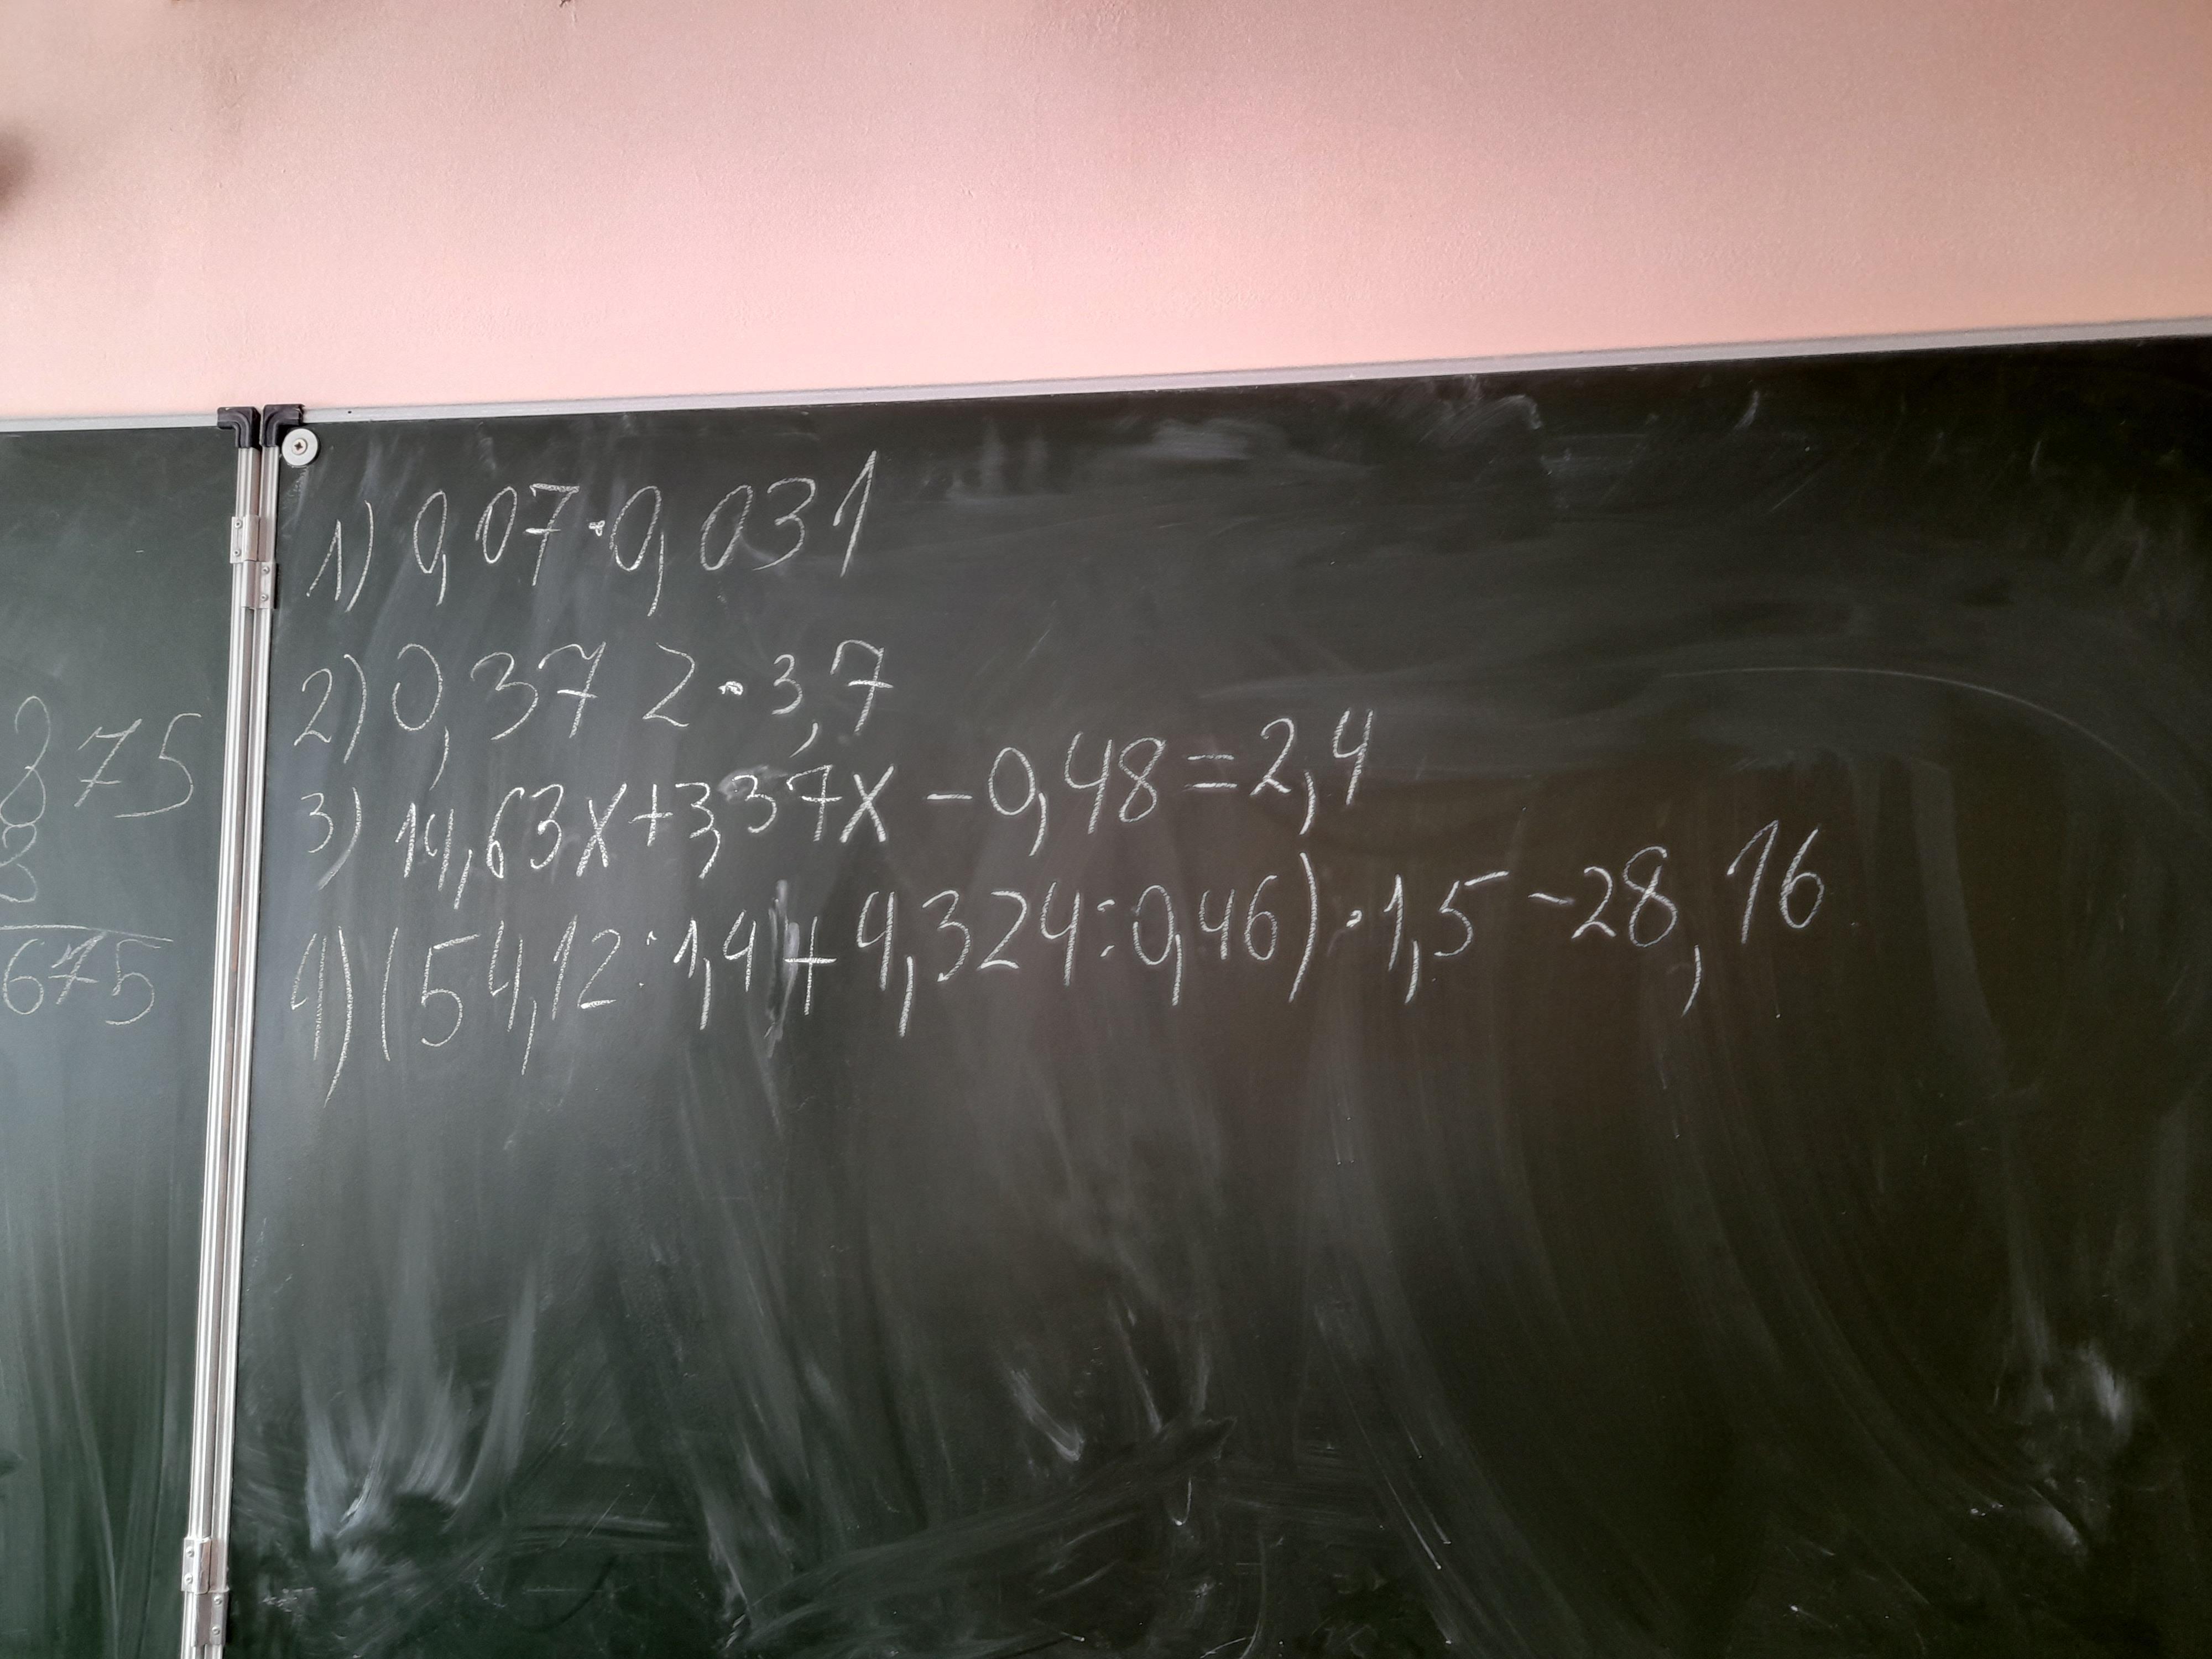 875
675
1) 0,07·0,031
2) 0,372·3,7
3) 14,63x+3,37x-0,48=2,4
4) (54,12:1,4+4,324:0,46)·1,5-28,16